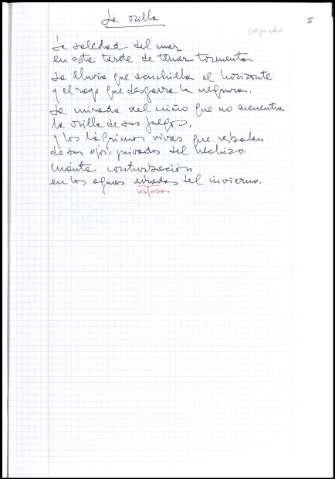 La orilla
copiado
5
La soledad del mar
en esta tarde de tenaz tormenta
La lluvia que acuchilla el horizonte
y el rayo que desgarra la negrura.
La mirada del niño que no encuentra
la orilla de sus juegos.
Y las lágrimas vivas que resbalan
de sus ojos, privados del hechizo
Cuánta conturbación
en las aguas airadas del invierno.